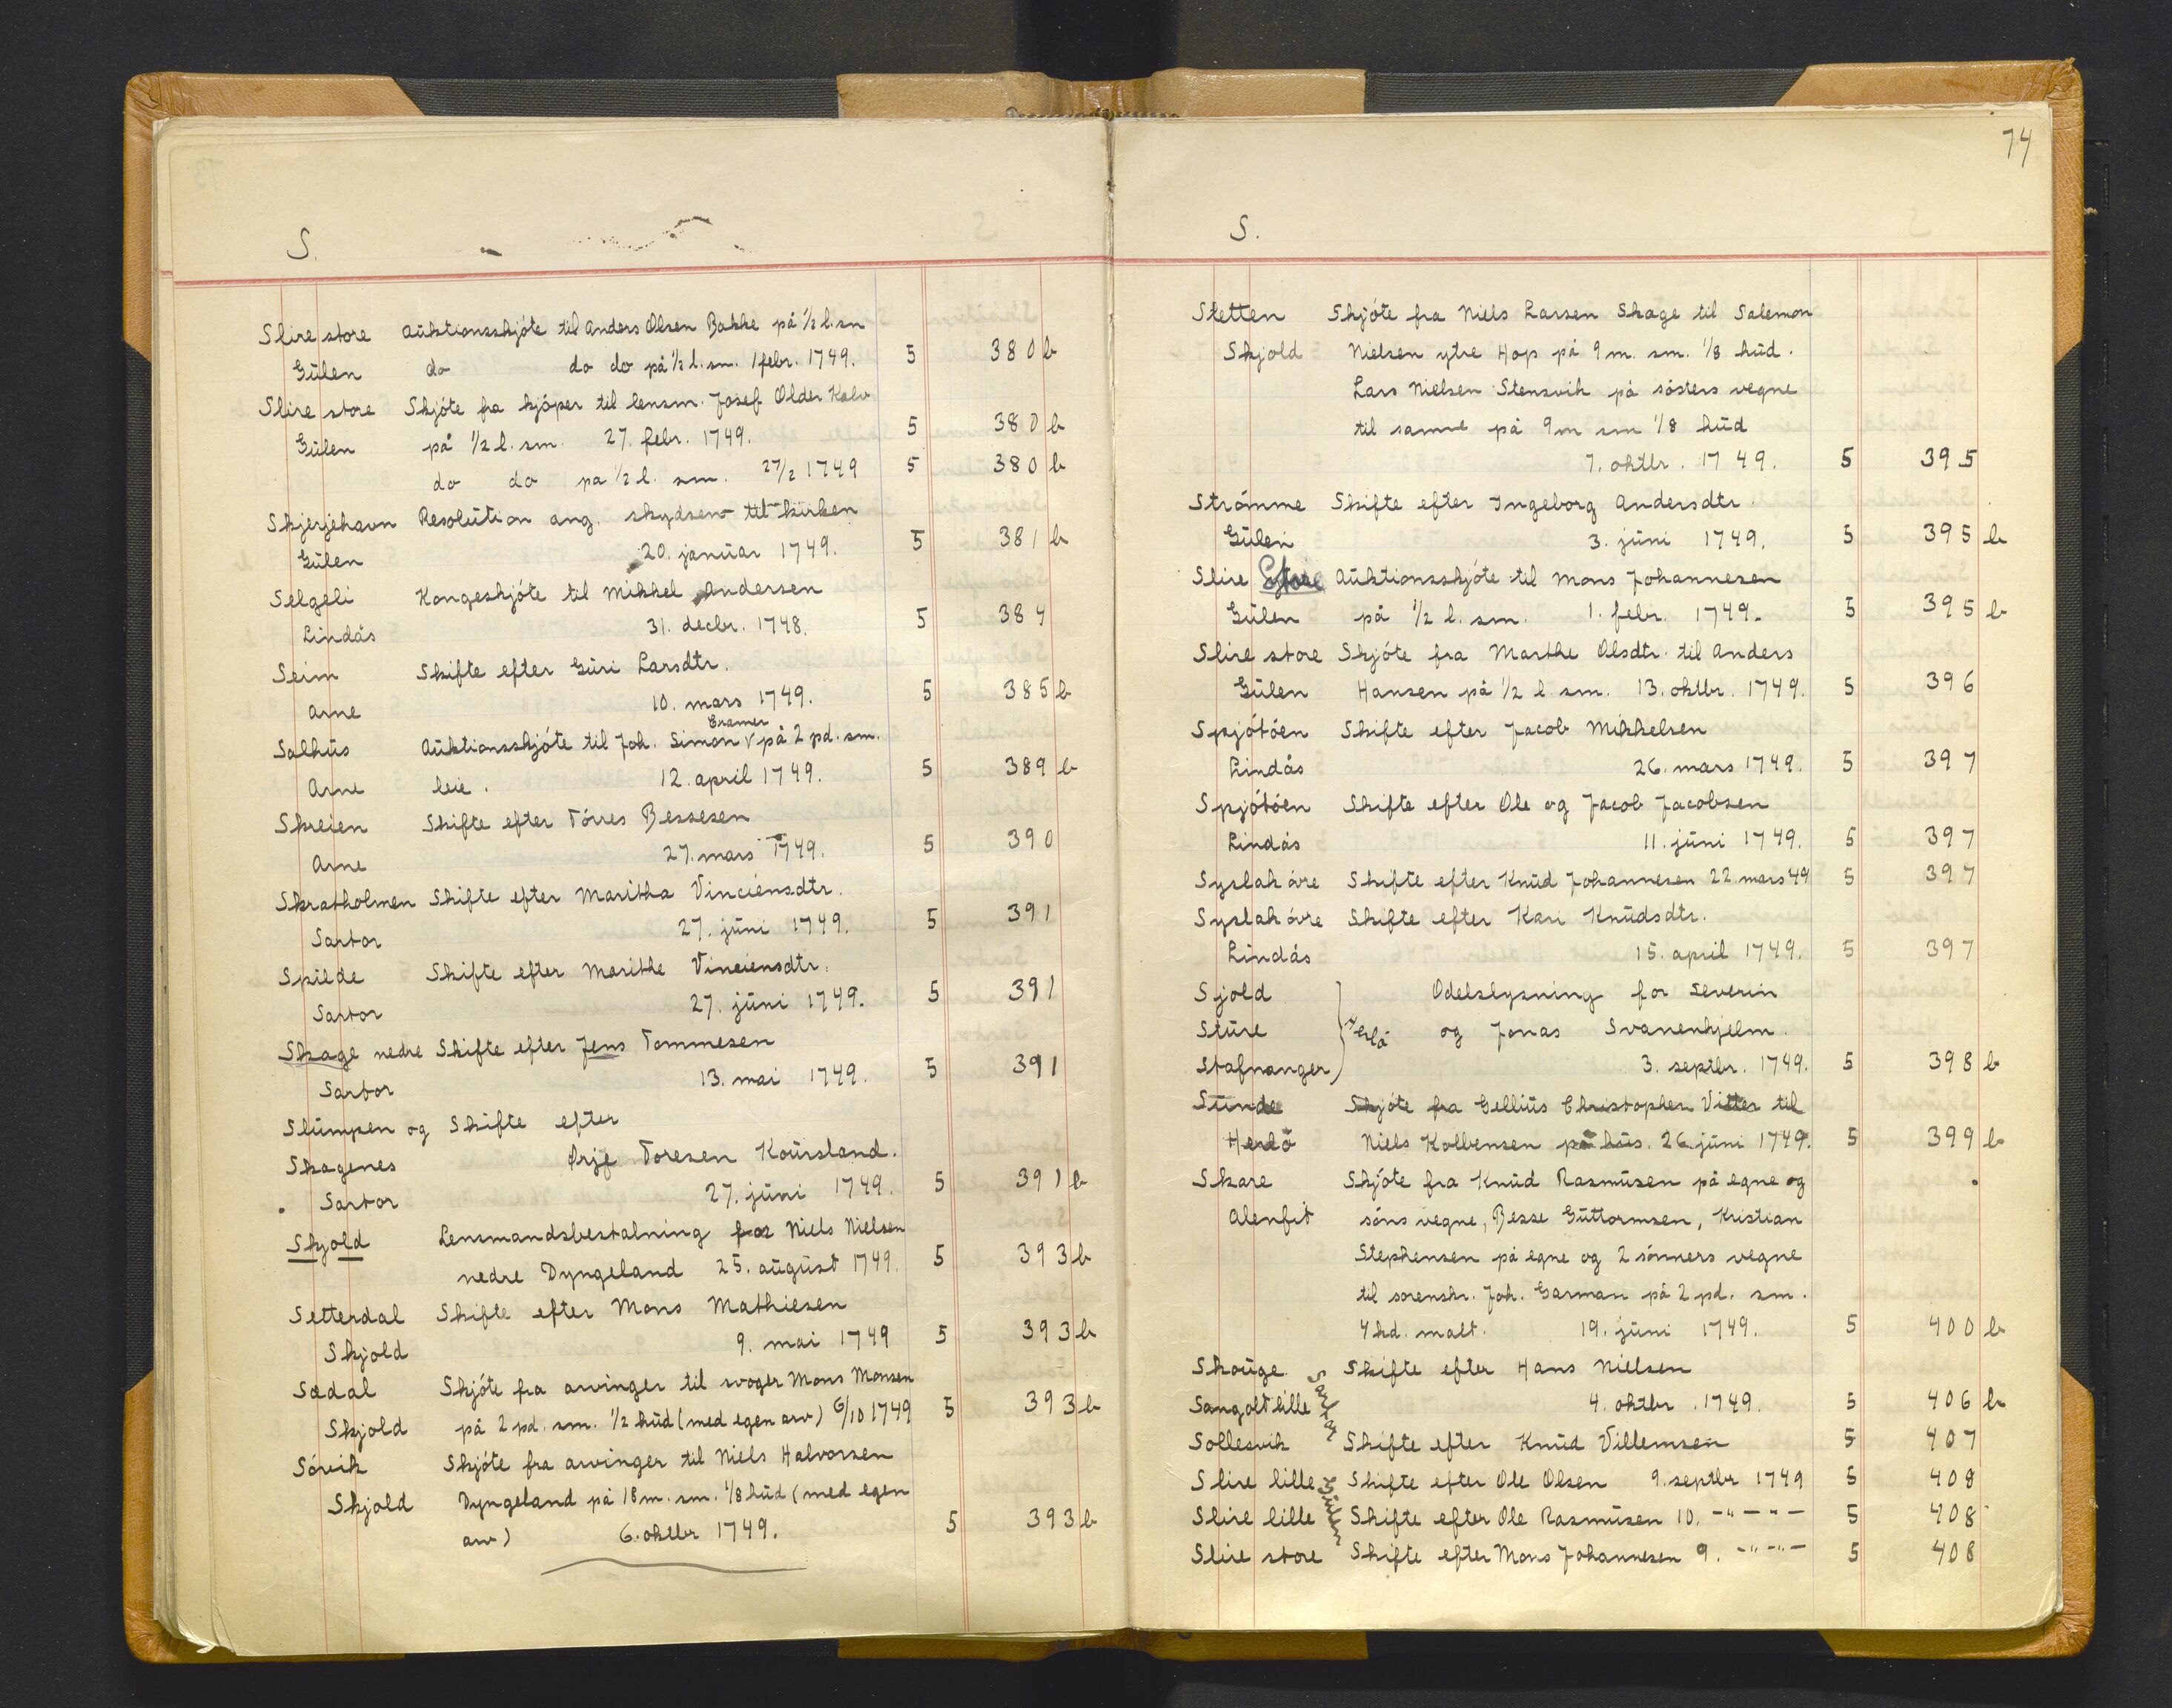 S.
Slire store Auktionsskjóte til Anders Olsen Bakke på 1/2 l. sm
Gŭlen do do do på 1/2 l. sm. 1 febr. 1749. 5 380 b
Slire store Skjóte fra kjóper til lensm. Josef Older Kalv
Gŭlen på 1/2 l. sm. 27. febr. 1749. 5 380 b
do do pa 1/2 l. sm. 27/2 1749 5 380 b
Skjerjehavn Resolŭtion ang. skydsen til kirken
Gŭlen 20. janŭar 1749. 5 381 b
Selgeli Kongeskjóte til Mikkel Andersen
Lindås 31. decbr. 1748. 5 384
Seim Skifte efter Gŭri Larsdtr.
Arne 10. mars 1749. 5 385 b
Cramer
Salhŭs Aŭktionsskjóte til Joh. Simon v på 2 pd. sm.
Arne leie. 12. april 1749. 5 389 b
Skreien Skifte efter Tórres Bessesen
Arne 27. mars 1749. 5 390
Skratholmen Skifte efter Maritha Vinciensdtr.
Sartor 27. jŭni 1749. 5 391
Spilde Skifte efter Marithe Vinciensdtr.
Sartor 27. jŭni 1749. 5 391
Skage nedre Skifte efter Jens Tommesen
Sartor 13. mai 1749. 5 391
Slŭmpen og Skifte efter
Skagenes Ørje Toresen Koŭrsland.
Sartor 27. jŭni 1749. 5 391 b
Skjold Lensmandsbestalning for Niels Nielsen
nedre Dyngeland 25. aŭgŭst 1749. 5 393 b
Setterdal Skifte efter Mons Mathiesen
Skjold 9. mai 1749 5 393 b
Sædal Skjóte fra arvinger til svoger Mons Monsen
Skjold på 2 pd. sm. 1/2 hŭd (med egen arv) 6/10 1749 5 393 b
Sórvik Skjóte fra arvinger til Niels Halvorsen
Skjold Dyngeland på 18 m. sm. 1/8 hŭd (med egen
arv) 6. oktbr 1749. 5 393 b
74
S.
Stetten Skjóte fra Niels Larsen Skage til Salemon
Skjold Nielsen ytre Hop på 9 m. sm. 1/8 hŭd.
Lars Nielsen Stensvik på sósters vegne
til samme på 9 m sm 1/8 hŭd
7. oktbr. 1749. 5 395
Strómme Skifte efter Ingeborg Andersdtr.
Gŭlen 3. jŭni 1749. 5 395 b
Slire Store Aŭktionsskjóte til Mons Johannesen
Gŭlen på 1/2 l. sm. 1. febr. 1749. 5 395 b
Slire store Skjóte fra Marthe Olsdtr. til Anders
Gŭlen Hansen på 1/2 l. sm. 13. oktbr. 1749. 5 396
Spjótóen Skifte efter Jacob Mikkelsen
Lindås 26. mars 1749. 5 397
Spjótóen Skifte efter Ole og Jacob Jacobsen
Lindås 11. jŭni 1749. 5 397
Syslak óvre Skifte efter Knŭd Johannesen 22. mars 49 5 397
Syslak óvre Skifte efter Kari Knŭdsdtr.
Lindås 15. april 1749. 5 397
Sjold Odelslysning for Severin
Stŭre Herlå og Jonas Svanenhjelm.
Stafnanger 3. septbr. 1749. 5 398 b
Sŭnde Skjóte fra Gelliŭs Christopher Vitter til
Herló Niels Kolbensen på hŭs. 26. jŭni 1749. 5 399 b
Skare Skjóte fra Knŭd Rasmŭsen på egne og
Alenfit sóns vegne, Besse Gŭttormsen, Kristian
Stephensen på egne og 2 sónners vegne
til sorenskr. Joh. Garman på 2 pd. sm.
4 hd. malt. 19. jŭni 1749. 5 400 b
Skoŭge. Skifte efter Hans Nielsen
Sartor
Sangolt lille 4. oktbr. 1749. 5 406 b
Sollesvik Skifte efter Knŭd Villemsen 5 407
Slire lille Skifte efter Ole Olsen 9. septbr 1749 5 408
Gŭlen
Slire lille Skifte efter Ole Rasmŭsen 10. -"- -"- 5 408
Slire store Skifte efter Mons Johannesen 9. -"- -"- 5 408